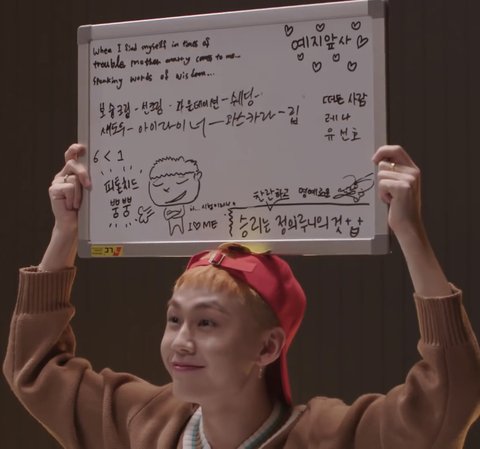 When I find myself in times of
trouble, mother mary comes to me...
Speaking words of wisdom...
예지앞사
보습크림 - 선크림 - 파운데이션 - 쉐딩 -
섀도우 - 아이라이너 - 마스카라 - 립
떠든 사람
레나
유선호
6 < 1
피톤치드
뿡뿡
I ♡ ME
찬란하고 명예로운
승리는 정의루니의 것